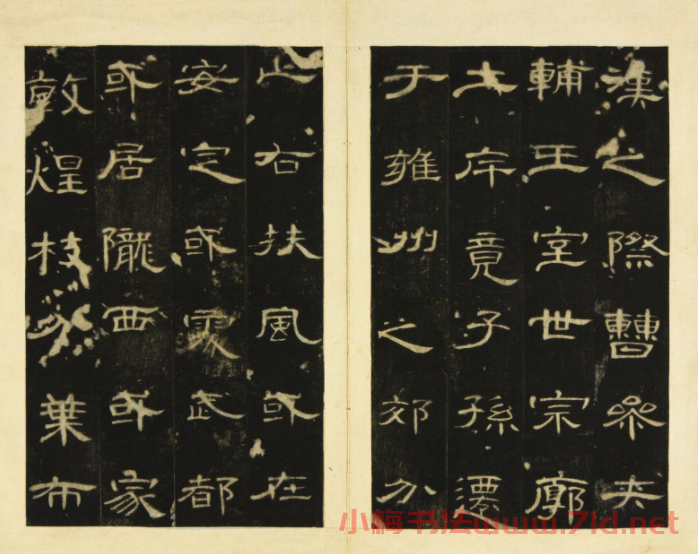 漢之際曹參夾
輔王室世宗廓
土斥竟子孫遷
于雍州之郊分
止右扶風或在
安定或處武都
或居隴西或家
敦煌枝分葉布
小梅书法www.7ld.net